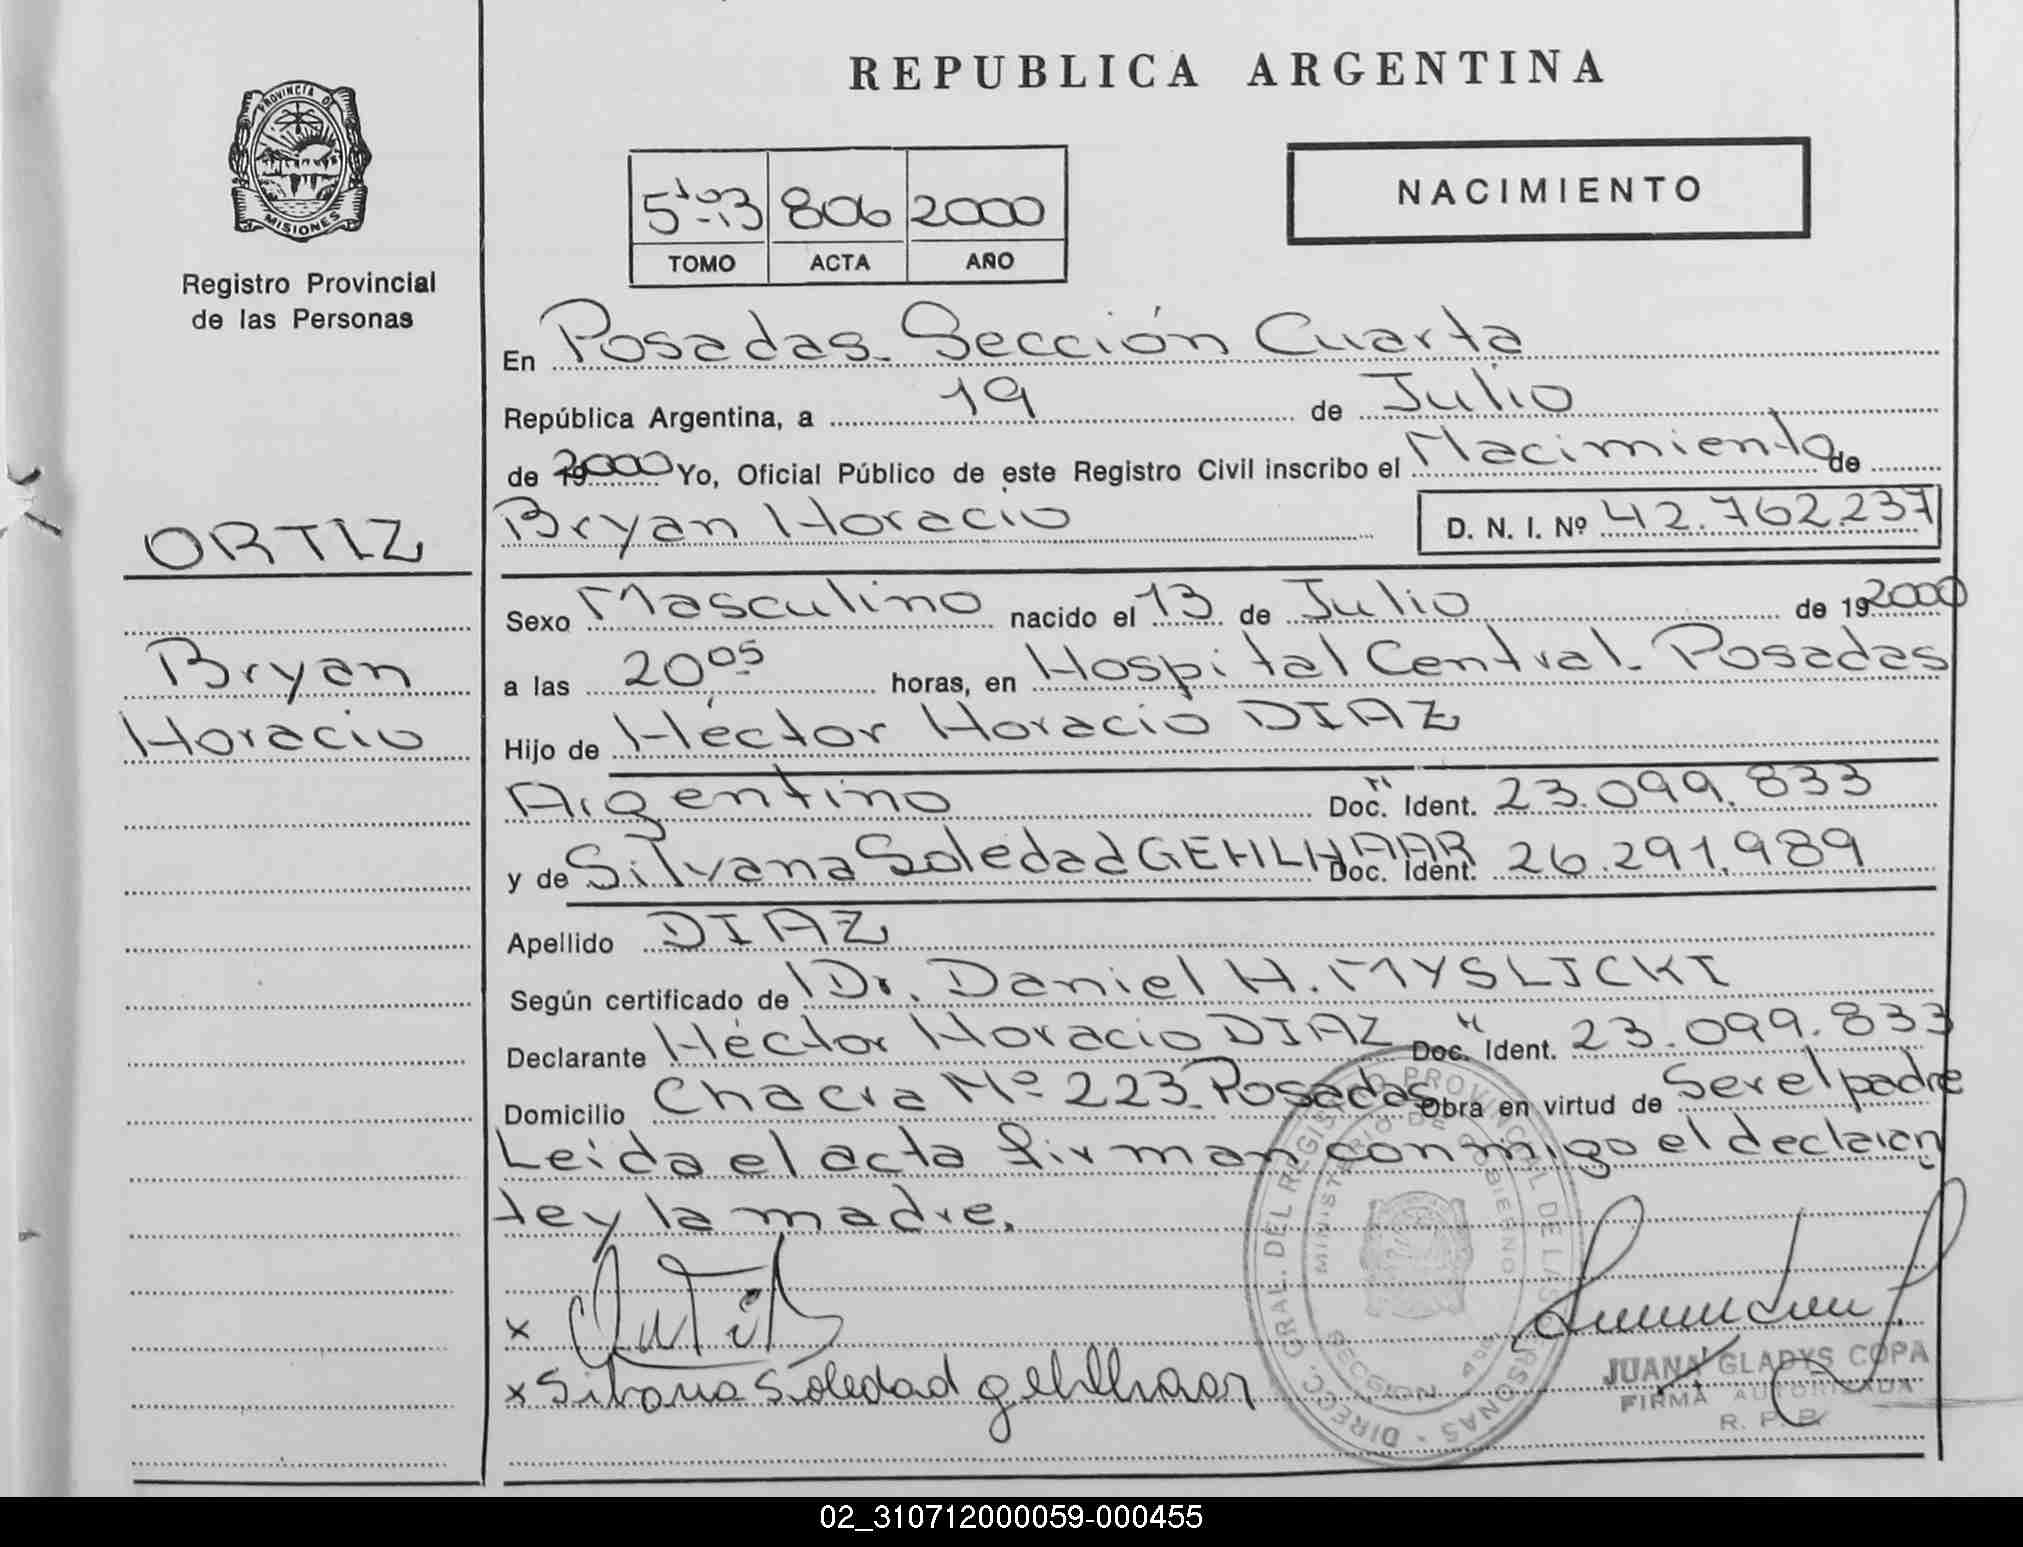 PROVINCIA DE
MISIONES
Registro Provincial
de las Personas
ORTIZ
Bryan
Horacio
REPUBLICA ARGENTINA
806 2000
TOMO ACTA AÑO
NACIMIENTO
En Posadas. Sección Cuarta
República Argentina, a 19 de Julio
de 2000 Yo, Oficial Público de este Registro Civil inscribo el Nacimiento de
Bryan Horacio D. N. I. Nº 42.762.237
Sexo Masculino nacido el 13 de Julio de 19 2000
a las 20 05 horas, en Hospital Central. Posadas
Hijo de Héctor Horacio DIAZ
Argentino Doc. Ident. 23.099.833
y de Silvana Soledad GEHLHAAR Doc. Ident. 26.291.989
Apellido DIAZ
Según certificado de Dr. Daniel H. MYSLICKI
Declarante Héctor Horacio DIAZ Doc. Ident. 23.099.833
Domicilio Chacra Nº 223. Posadas Obra en virtud de Ser el padre
Leída el acta firman conmigo el declaran
te y la madre.
x
x Silvana Soledad gehlhaar
DIRECC. GRAL. DEL REGISTRO PROVINCIAL DE LAS PERSONAS
MINISTERIO DE GOBIERNO
SECCION
JUANA GLADYS COPA
FIRMA AUTORIZADA
R. P. P.
02_310712000059-000455